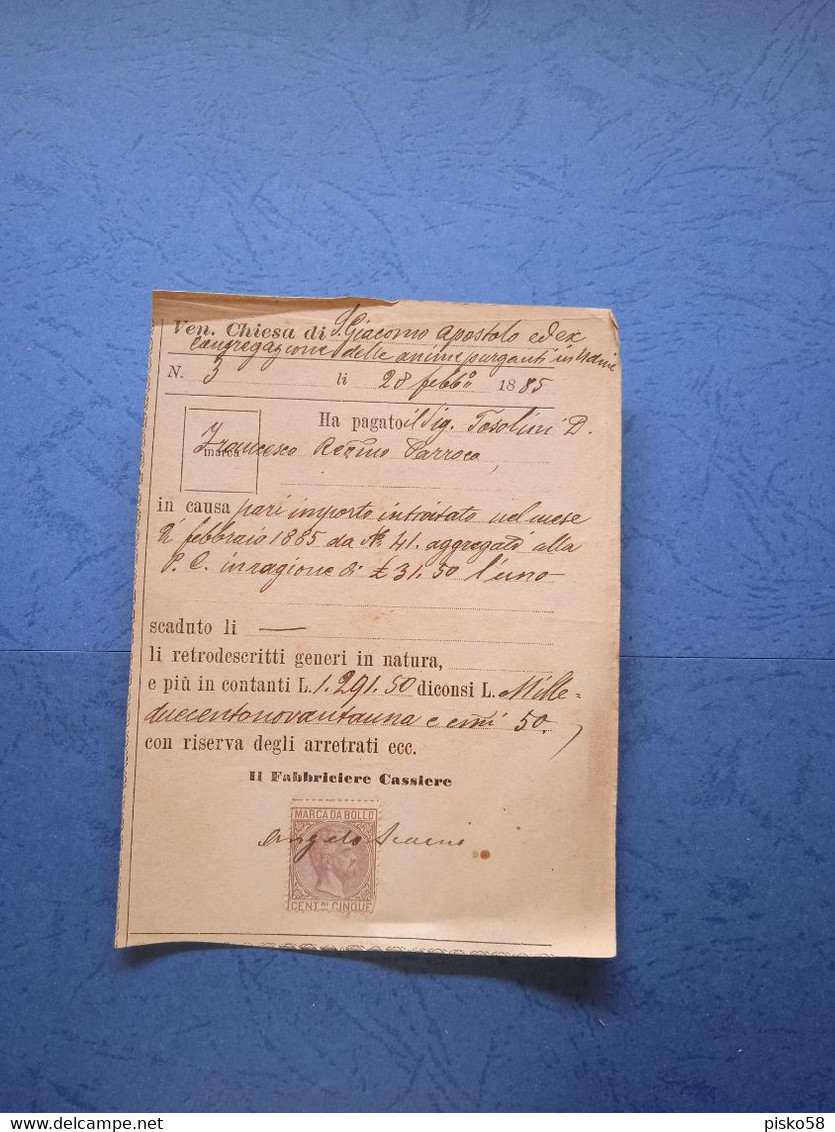 Ven. Chiesa di S. Giacomo Apostolo ed ex
Congregazione delle anime purganti in Udine
N. 3 li 28 febb.º 1885
Ha pagato il Sig. Tosolini D.
marca
Francesco Parroco
in causa pari importo introitato nel mese
di febbraio 1885 da Nº 41. aggregati alla
P. C. in ragione di £ 31.50 l'uno
scaduto li —
li retrodescritti generi in natura,
e più in contanti L. 1.291.50 diconsi L. Mille-
duecentonovantauna e cmi 50.
con riserva degli arretrati ecc.
Il Fabbriciere Cassiere
MARCA DA BOLLO
Angelo
CENT.MI CINQUE
delcampe.net
pisko58